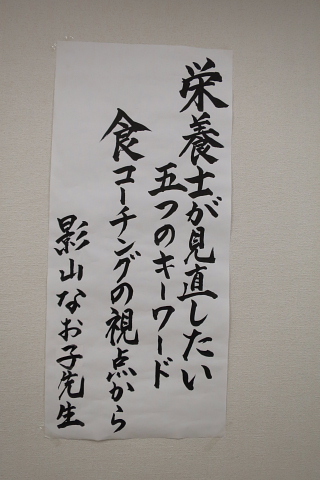 栄養士が見直したい
五つのキーワード
食コーチングの視点から
影山なお子先生